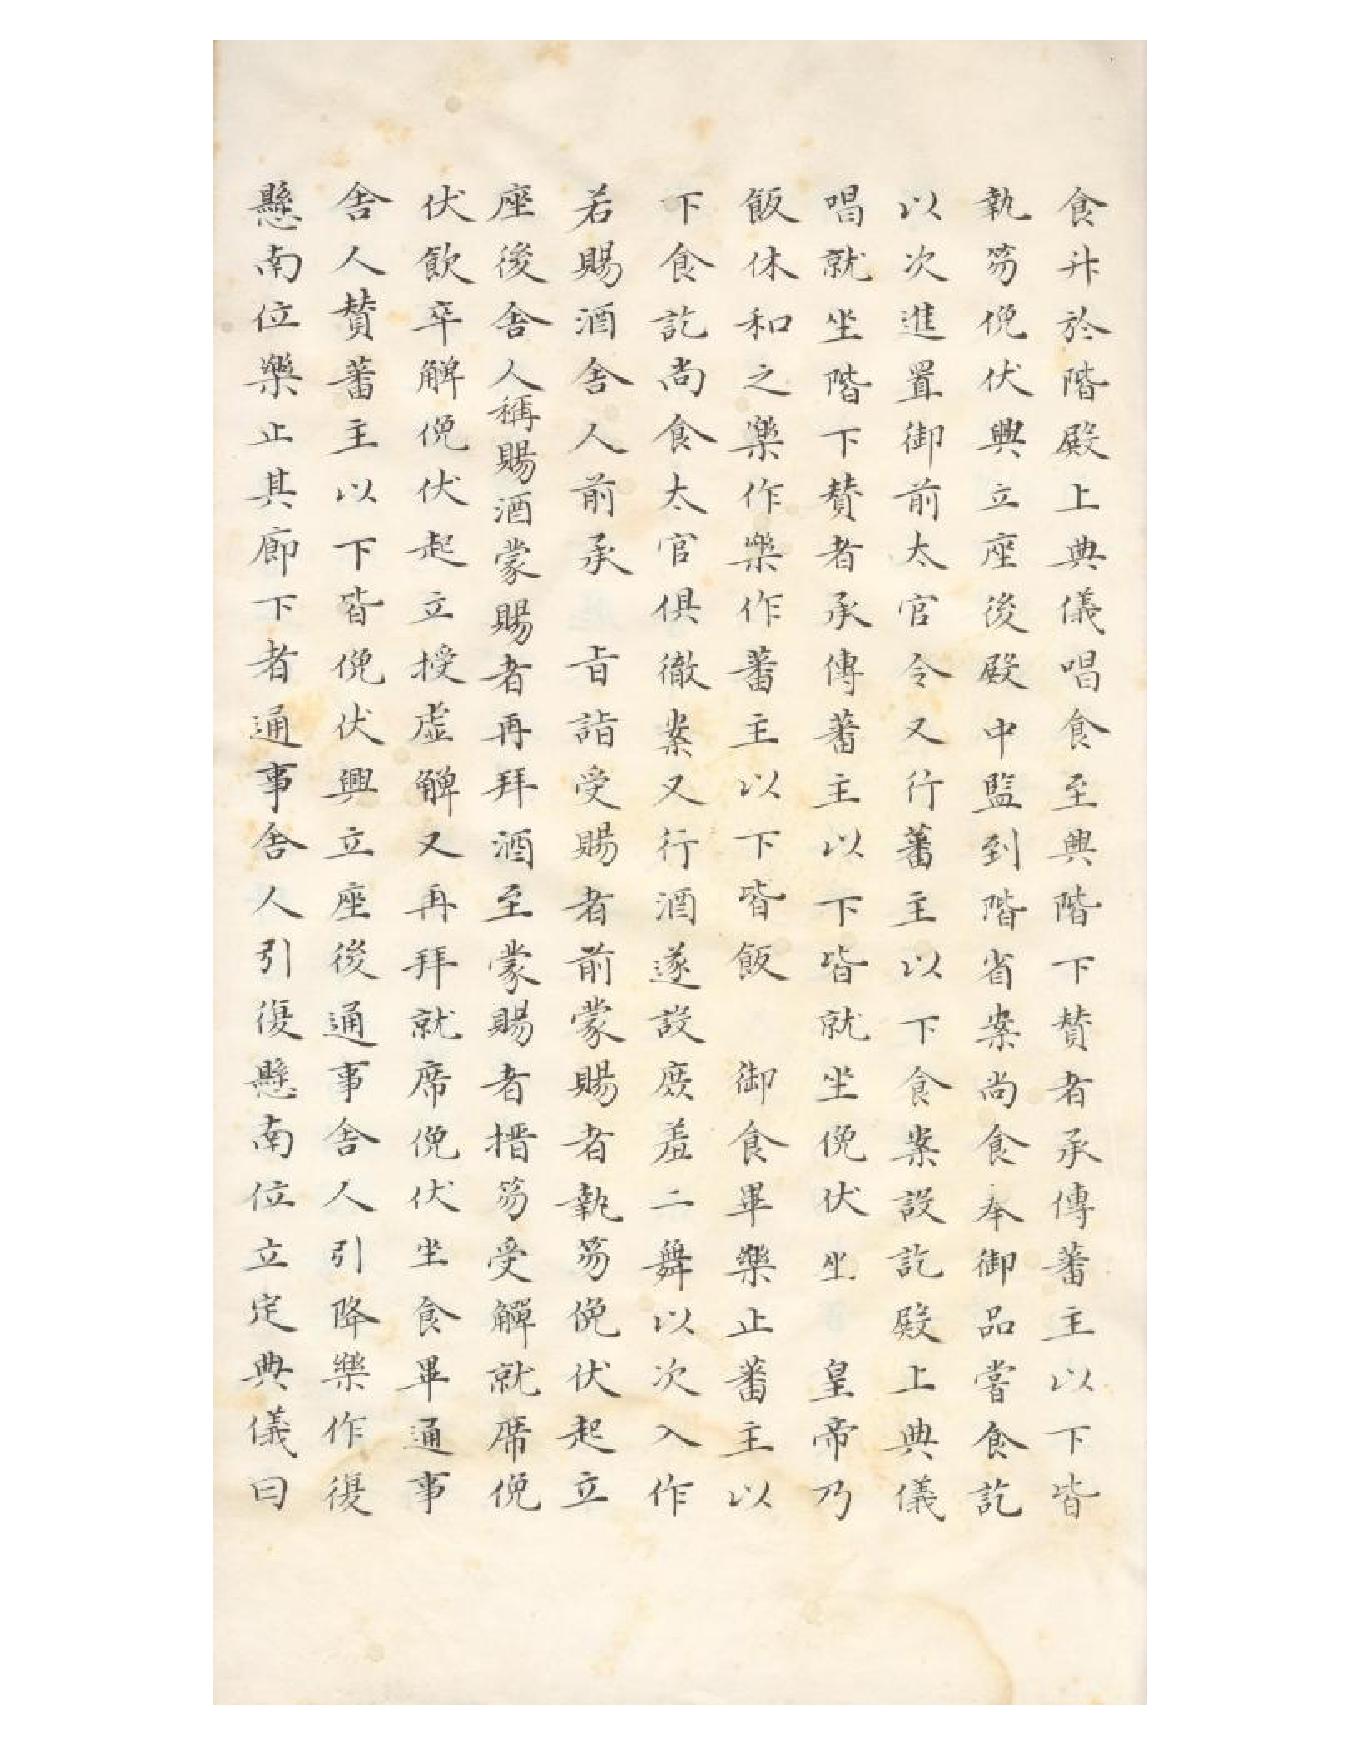 食升於階殿上典儀唱食至興階下賛者承傳蕃主以下皆
執笏俛伏興立座後殿中監到階省案尚食奉御品嘗食訖
以次進置御前太官令又行蕃主以下食案設訖殿上典儀
唱就坐階下賛者承傳蕃主以下皆就坐俛伏坐　皇帝乃
飯休和之樂作樂作蕃主以下皆飯　御食畢樂止蕃主以
下食訖尚食太官俱徹案又行酒遂設庶羞二舞以次入作
若賜酒舍人前承　旨詣受賜者前蒙賜者執笏俛伏起立
座後舍人稱賜酒蒙賜者再拜酒至蒙賜者搢笏受觶就席俛
伏飲卒觶俛伏起立授虛觶又再拜就席俛伏坐食畢通事
舍人賛蕃主以下皆俛伏興立座後通事舍人引降樂作復
懸南位樂止其廊下者通事舍人引復懸南位立定典儀曰